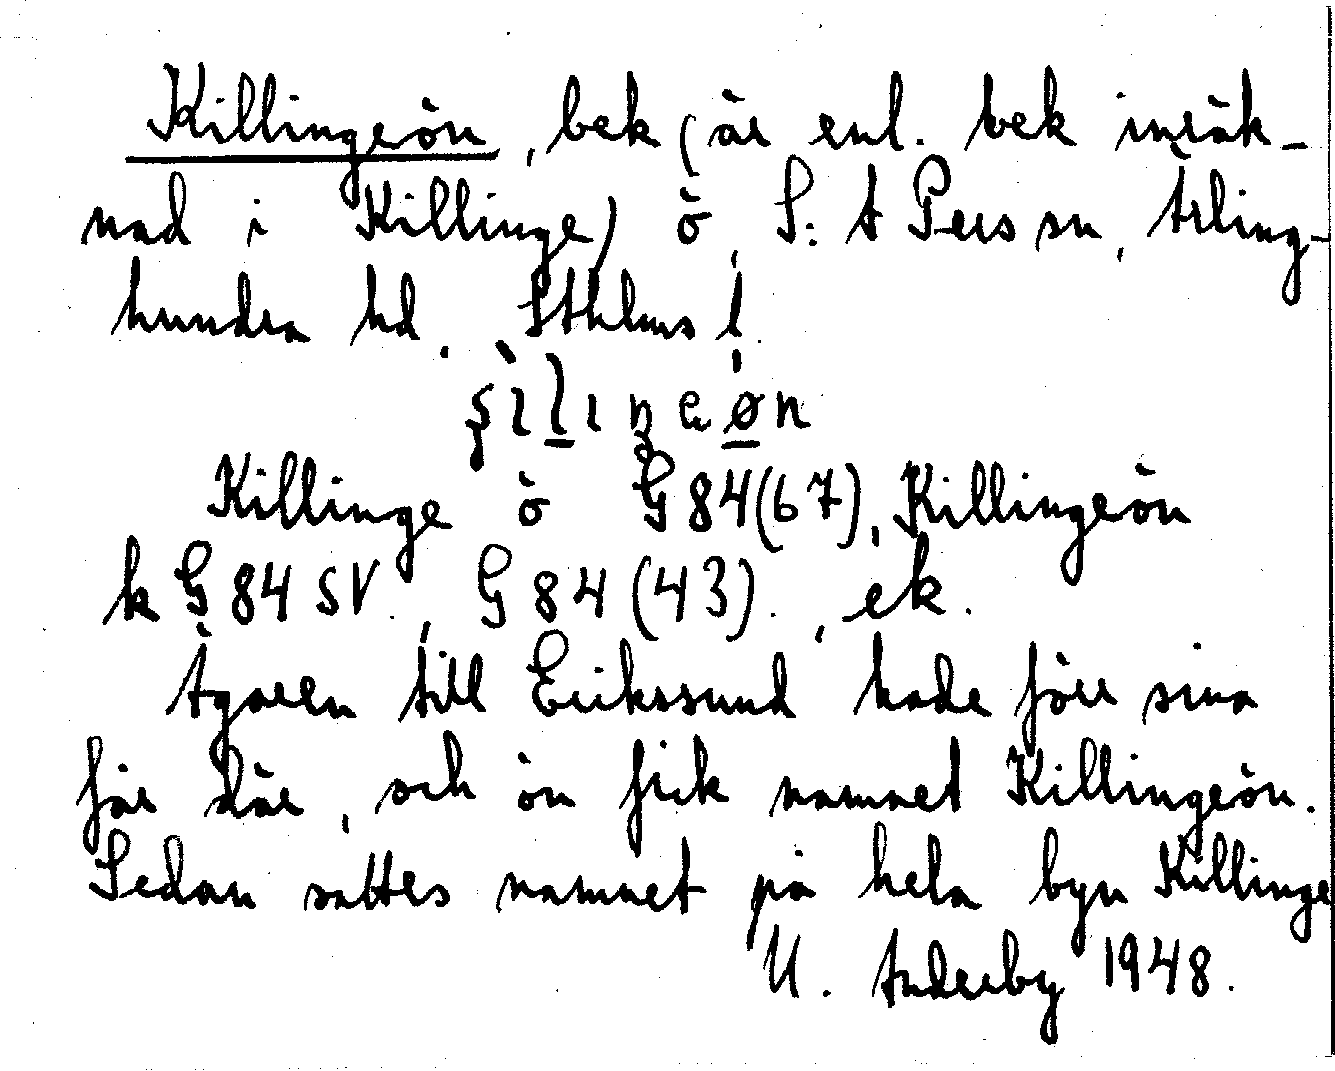 Killingeön, bek (är enl. bek inräk-
nad i Killinge) ö, S:t Pers sn, Ärling-
hundra hd. Sthlms l
Killinge ö G 84 (67), Killingeön
k G 84 SV., G 84 (43)., ek.
Ägaren till Erikssund hade förr sina
får där, och ön fick namnet Killingeön.
Sedan sattes namnet på hela byn Killinge
U. Anderby 1948.